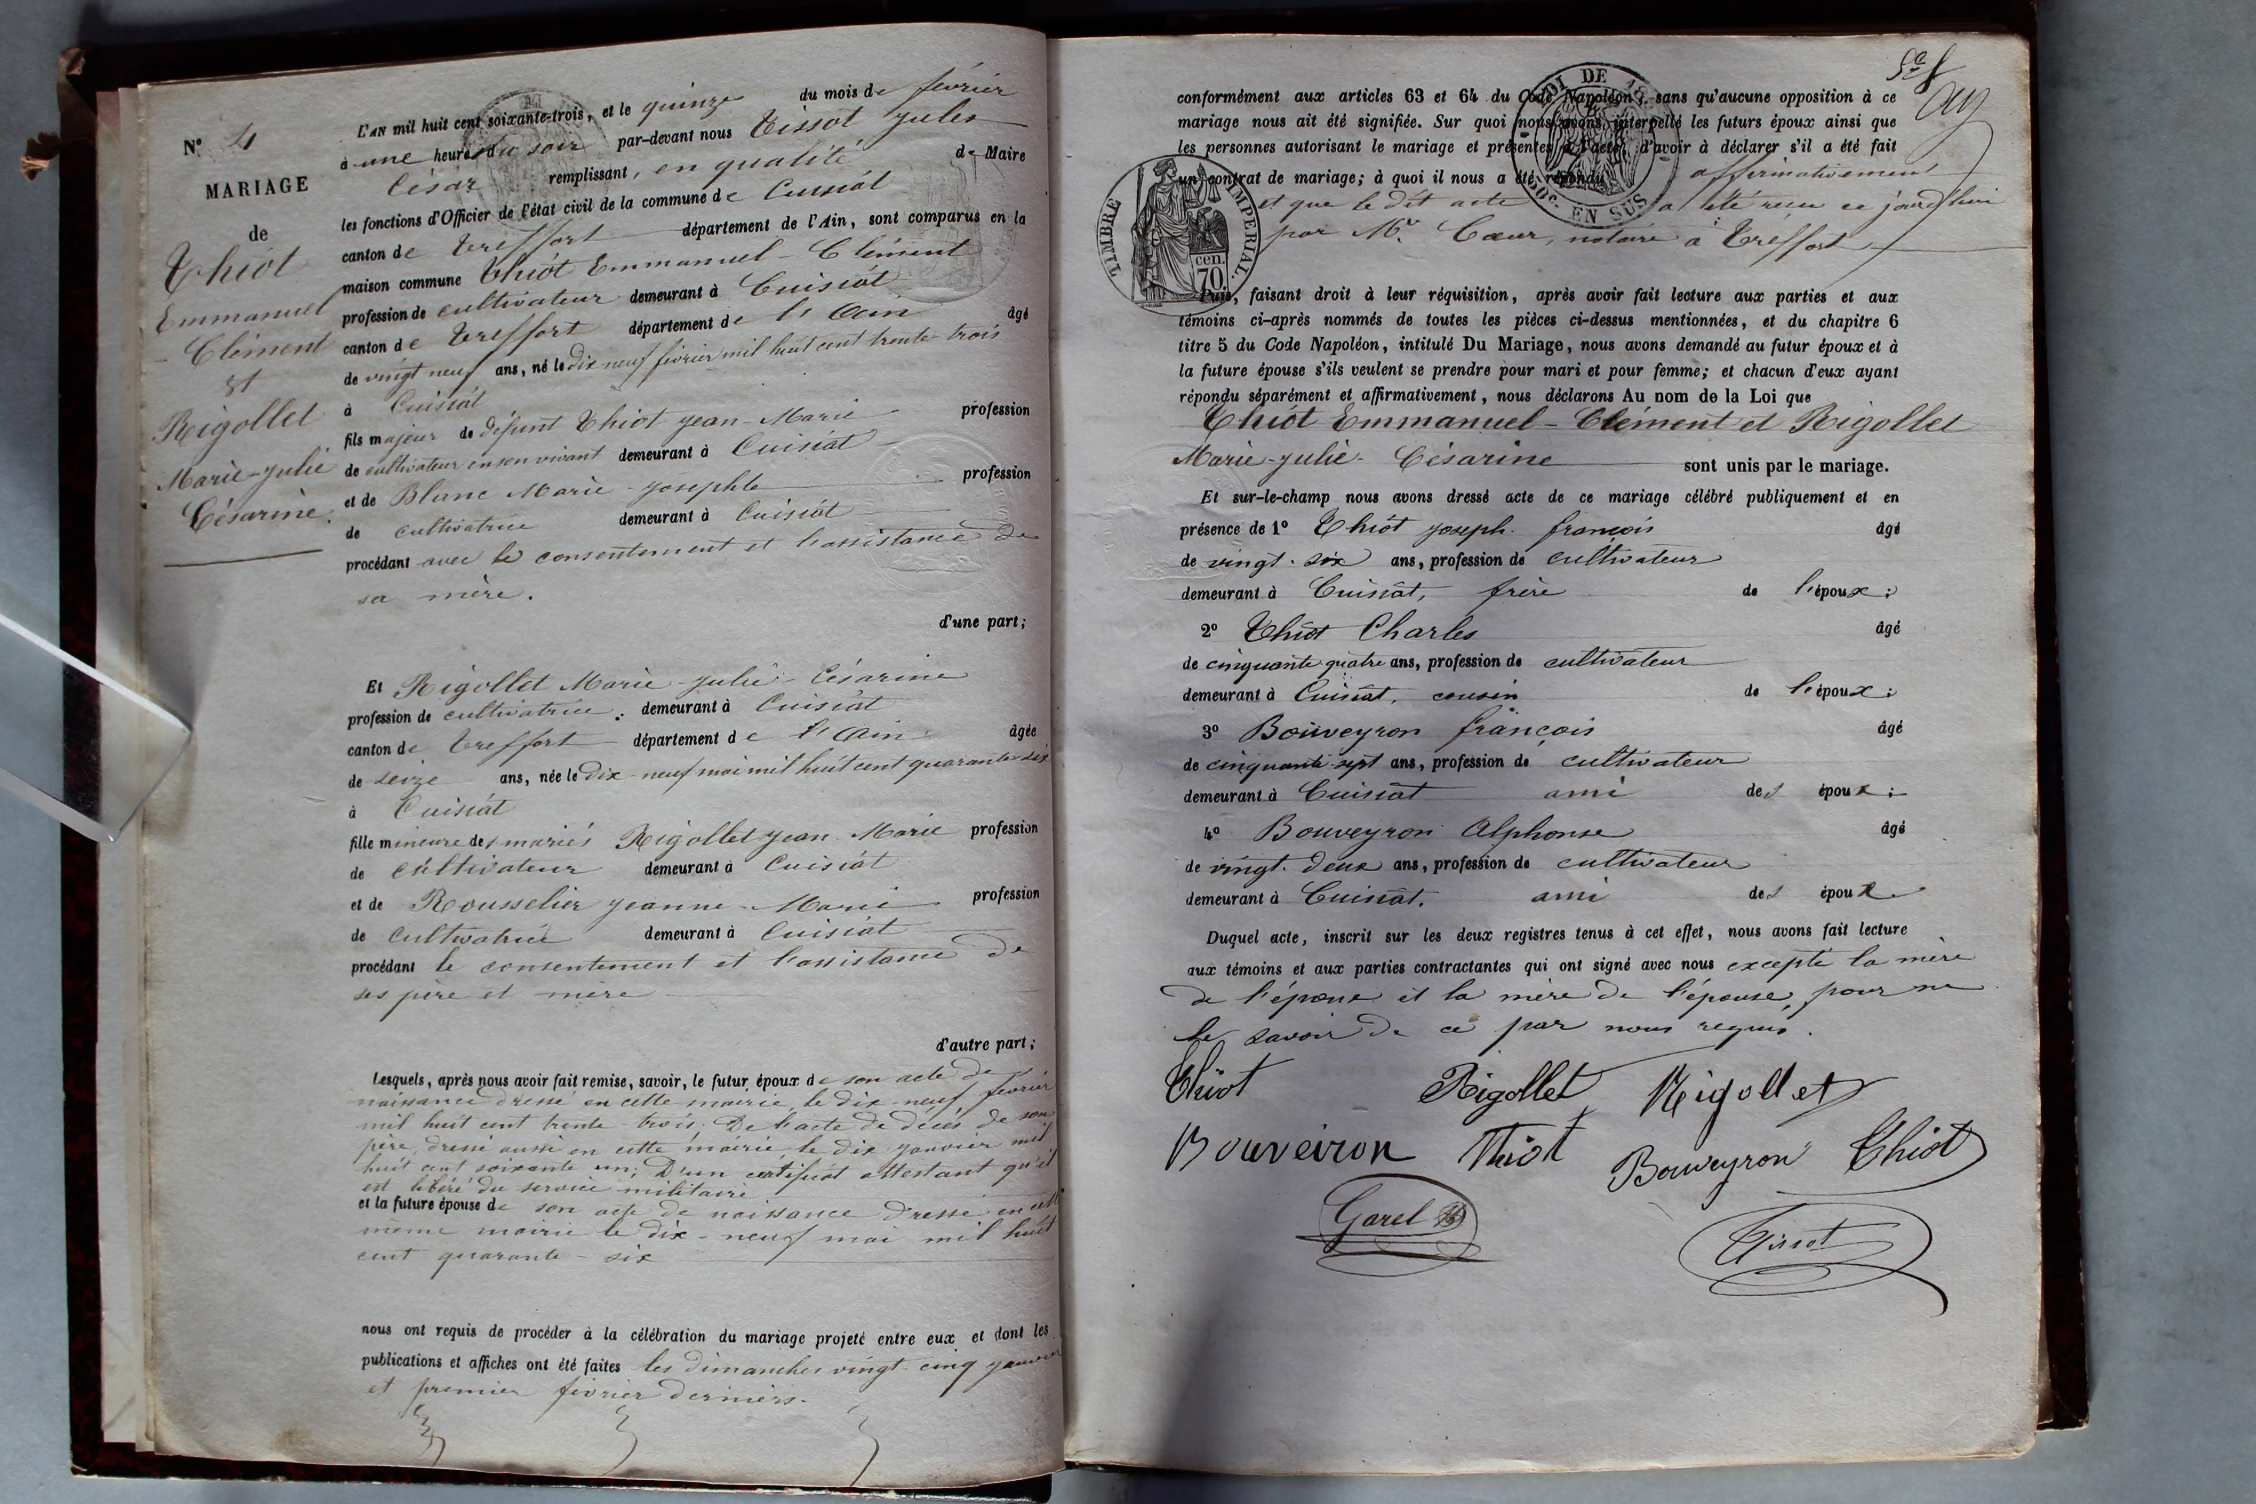 N° 4
MARIAGE
de
Thiot
Emmanuel
- Clément
et
Rigollet
Marie-Julie
Césarine.
L'AN mil huit cent soixante-trois, et le quinze du mois de février
à une heure du soir par-devant nous Tissot Jules
César remplissant, en qualité de Maire
les fonctions d'Officier de l'état civil de la commune de Cuisiat
canton de Treffort département de l'Ain, sont comparus en la
maison commune Thiot Emmanuel - Clément
profession de cultivateur demeurant à Cuisiat
canton de Treffort département de l'Ain âgé
de vingt neuf ans, né le dix neuf février mil huit cent trente-trois
à Cuisiat
fils majeur de défunt Thiot Jean-Marie profession
de cultivateur en son vivant demeurant à Cuisiat
et de Blanc Marie Josephte profession
de cultivatrice demeurant à Cuisiat
procédant avec le consentement et l'assistance de
sa mère.
d'une part;
Et Rigollet Marie-Julie-Césarine
profession de cultivatrice. demeurant à Cuisiat
canton de Treffort département de l'Ain âgée
de seize ans, née le dix-neuf mai mil huit cent quarante six
à Cuisiat
fille mineure des mariés Rigollet Jean Marie profession
de cultivateur demeurant à Cuisiat
et de Rousselier Jeanne-Marie profession
de cultivatrice demeurant à Cuisiat
procédant le consentement et l'assistance de
ses père et mère
d'autre part;
Lesquels, après nous avoir fait remise, savoir, le futur époux de son acte de
naissance dressé en cette mairie le dix-neuf février
mil huit cent trente-trois. De l'acte de décès de son
père, dressé aussi en cette mairie le dix janvier mil
huit cent soixante un; D'un certificat attestant qu'il
est libéré du service militaire
et la future épouse de son acte de naissance dressé en cette
même mairie le dix-neuf mai mil huit
cent quarante-six
nous ont requis de procéder à la célébration du mariage projeté entre eux et dont les
publications et affiches ont été faites les dimanches vingt-cinq janvier
et premier février derniers.
conformément aux articles 63 et 64 du Code Napoléon; sans qu'aucune opposition à ce
mariage nous ait été signifiée. Sur quoi nous avons interpellé les futurs époux ainsi que
les personnes autorisant le mariage et présentes à l'acte, d'avoir à déclarer s'il a été fait
un contrat de mariage; à quoi il nous a été répondu affirmativement
et que le dit acte a été reçu ce jourd'hui
par Mr. Cœur, notaire à Treffort
TIMBRE IMPERIAL.
cen.
70
50c. EN SUS
Puis, faisant droit à leur réquisition, après avoir fait lecture aux parties et aux
témoins ci-après nommés de toutes les pièces ci-dessus mentionnées, et du chapitre 6
titre 5 du Code Napoléon, intitulé Du Mariage, nous avons demandé au futur époux et à
la future épouse s'ils veulent se prendre pour mari et pour femme; et chacun d'eux ayant
répondu séparément et affirmativement, nous déclarons Au nom de la Loi que
Thiot Emmanuel-Clément et Rigollet
Marie-Julie-Césarine sont unis par le mariage.
Et sur-le-champ nous avons dressé acte de ce mariage célébré publiquement et en
présence de 1° Thiot Joseph françois âgé
de vingt-six ans, profession de cultivateur
demeurant à Cuisiat, frère de l'époux;
2° Thiot Charles âgé
de cinquante quatre ans, profession de cultivateur
demeurant à Cuisiat, cousin de l'époux;
3° Bouveyron françois âgé
de cinquante-sept ans, profession de cultivateur
demeurant à Cuisiat ami des époux;
4° Bouveyron Alphonse âgé
de vingt-deux ans, profession de cultivateur
demeurant à Cuisiat. ami des époux
Duquel acte, inscrit sur les deux registres tenus à cet effet, nous avons fait lecture
aux témoins et aux parties contractantes qui ont signé avec nous excepté la mère
de l'époux et la mère de l'épouse, pour ne
le savoir de ce par nous requis.
Thiot Rigollet Rigollet
Bouveiron Thiot Bouveyron Thiot
Garel
Tissot